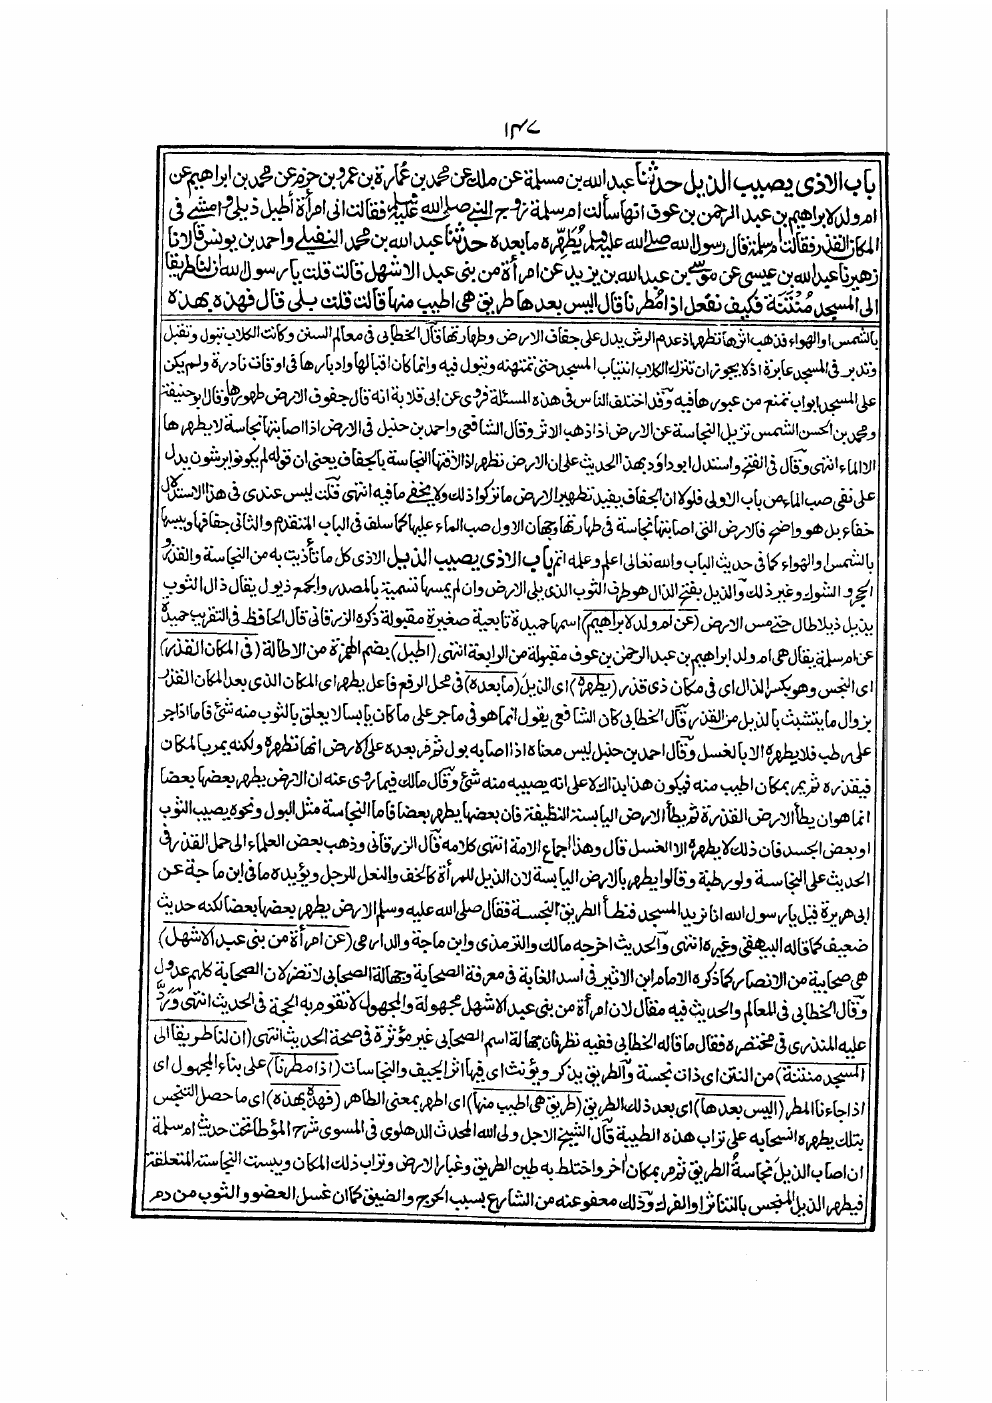 ١٤٧
باب الاذى يصيب الذيل حدثنا عبد الله بن مسلمة عن ملك عن محمد بن عمارة بن عمرو بن حزم عن محمد بن ابراهيم عن
ام ولد لابراهيم بن عبد الرحمن بن عوف انها سألت ام سلمة زوج النبي صلى الله عليه وسلم فقالت انى امرأة أطيل ذيلى وامشى فى
المكان القذر فقالت ام سلمة قال رسول الله صلى الله عليه وسلم يُطَهِّره ما بعده حدثنا عبد الله بن محمد النفيلى واحمد بن يونس قالا نا
زهير نا عبد الله بن عيسى عن موسى بن عبد الله بن يزيد عن امرأة من بنى عبد الاشهل قالت قلت يا رسول الله ان لنا طريقا
الى المسجد مُنْتِنَة فكيف نفعل اذا مُطرنا قال اليس بعدها طريق هى اطيب منها قالت قلت بلى قال فهذه بهذه
بالشمس او الهواء فذهب اثرها تطهر اذ عدم الرش يدل على جفاف الارض وطهارتها قال الخطابى فى معالم السنن وكانت الكلاب تبول وتقبل
وتدبر فى المسجد عابرة اذ لا يجوز ان تترك الكلاب انتياب المسجد حتى تمتهنه وتبول فيه وانما كان اقبالها وادبارها فى اوقات نادرة ولم يكن
على المسجد ابواب تمنع من عبورها فيه وقد اختلف الناس فى هذه المسئلة فروى عن ابى قلابة انه قال جفوف الارض طهورها وقال ابو حنيفة
ومحمد بن الحسن الشمس تزيل النجاسة عن الارض اذا ذهب الاثر وقال الشافعى واحمد بن حنبل فى الارض اذا اصابتها نجاسة لا يطهرها
الا الماء انتهى وقال فى الفتح واستدل ابو داود بهذا الحديث على ان الارض تطهر اذا لاقتها النجاسة بالجفاف يعنى ان قوله لم يكونوا يرشون يدل
على نفى صب الماء من باب الاولى فلولا ان الجفاف يفيد تطهير الارض ما تركوا ذلك ولا يخفى ما فيه انتهى قلت ليس عندى فى هذا الاستدلال
خفاء بل هو واضح فالارض التى اصابتها نجاسة فى طهارتها وجهان الاول صب الماء عليها كما سلف فى الباب المتقدم والثانى جفافها ويبسها
بالشمس او الهواء كما فى حديث الباب والله تعالى اعلم وعلمه اتم باب الاذى يصيب الذيل الاذى كل ما تأذيت به من النجاسة والقذر و
الحجر و الشوك وغير ذلك والذيل بفتح الذال هو طرف الثوب الذى يلى الارض وان لم يمسها تسمية بالمصدر والجمع ذيول يقال ذال الثوب
يذيل ذيلا طال حتى مس الارض (عن ام ولد لابراهيم) اسمها حميدة تابعية صغيرة مقبولة ذكره الزرقانى قال الحافظ فى التقريب حميدة
عن ام سلمة يقال هى ام ولد ابراهيم بن عبد الرحمن بن عوف مقبولة من الرابعة انتهى (اطيل) بضم الهمزة من الاطالة (فى المكان القذر)
اى النجس وهو بكسر الذال اى فى مكان ذى قذر (يطهره) اى الذيل (ما بعده) فى محل الرفع فاعل يطهر اى المكان الذى بعد المكان القذر
بزوال ما يتشبث بالذيل من القذر قال الخطابى كان الشافعى يقول انما هو فى ما جر على ما كان يابسا لا يعلق بالثوب منه شئ فاما اذا جر
على رطب فلا يطهره الا بالغسل وقال احمد بن حنبل ليس معناه اذا اصابه بول ثم مر بعده على الارض انها تطهره ولكنه يمر بالمكان
فيقذره ثم يمر بمكان اطيب منه فيكون هذا بذاك لا على انه يصيبه منه شئ وقال مالك فيما روى عنه ان الارض يطهر بعضها بعضا
انما هو ان يطأ الارض القذرة ثم يطأ الارض اليابسة النظيفة فان بعضها يطهر بعضا فاما النجاسة مثل البول ونحوه يصيب الثوب
او بعض الجسد فان ذلك لا يطهره الا الغسل قال وهذا اجماع الامة انتهى كلامه قال الزرقانى وذهب بعض العلماء الى حمل القذر فى
الحديث على النجاسة ولو رطبة وقالوا يطهر بالارض اليابسة لان الذيل للمرأة كالخف والنعل للرجل ويؤيده ما فى ابن ماجة عن
ابى هريرة قيل يا رسول الله انا نريد المسجد فنطأ الطريق النجسة فقال صلى الله عليه وسلم الارض يطهر بعضها بعضا لكنه حديث
ضعيف كما قاله البيهقى وغيره انتهى والحديث اخرجه مالك والترمذى وابن ماجة والدارمى (عن امرأة من بنى عبد الاشهل)
هى صحابية من الانصار كما ذكره الامام ابن الاثير فى اسد الغابة فى معرفة الصحابة وجهالة الصحابى لا تضر لان الصحابة كلهم عدول
وقال الخطابى فى المعالم والحديث فيه مقال لان امرأة من بنى عبد الاشهل مجهولة والمجهول لا تقوم به الحجة فى الحديث انتهى وردّ
عليه المنذرى فى مختصره فقال ما قاله الخطابى ففيه نظر فان جهالة اسم الصحابى غير مؤثرة فى صحة الحديث انتهى (ان لنا طريقا الى
المسجد منتنة) من النتن اى ذات نجسة والطريق يذكر ويؤنث اى فيها اثر الجيف والنجاسات (اذا مطرنا) على بناء المجهول اى
اذا جاءنا المطر (اليس بعدها) اى بعد ذلك الطريق (طريق هى اطيب منها) اى اطهر بمعنى الطاهر (فهذه بهذه) اى ما حصل التنجس
بتلك يطهره انسحابه على تراب هذه الطيبة قال الشيخ الاجل ولى الله المحدث الدهلوى فى المسوى شرح المؤطا تحت حديث ام سلمة
ان اصاب الذيل نجاسة الطريق ثم مر بمكان آخر واختلط به طين الطريق وغبار الارض وتراب ذلك المكان ويبست النجاسة المتعلقة
فيطهر الذيل المنجس بالتناثر او الفرك وذلك معفو عنه من الشارع بسبب الحرج والضيق كما ان غسل العضو والثوب من دم